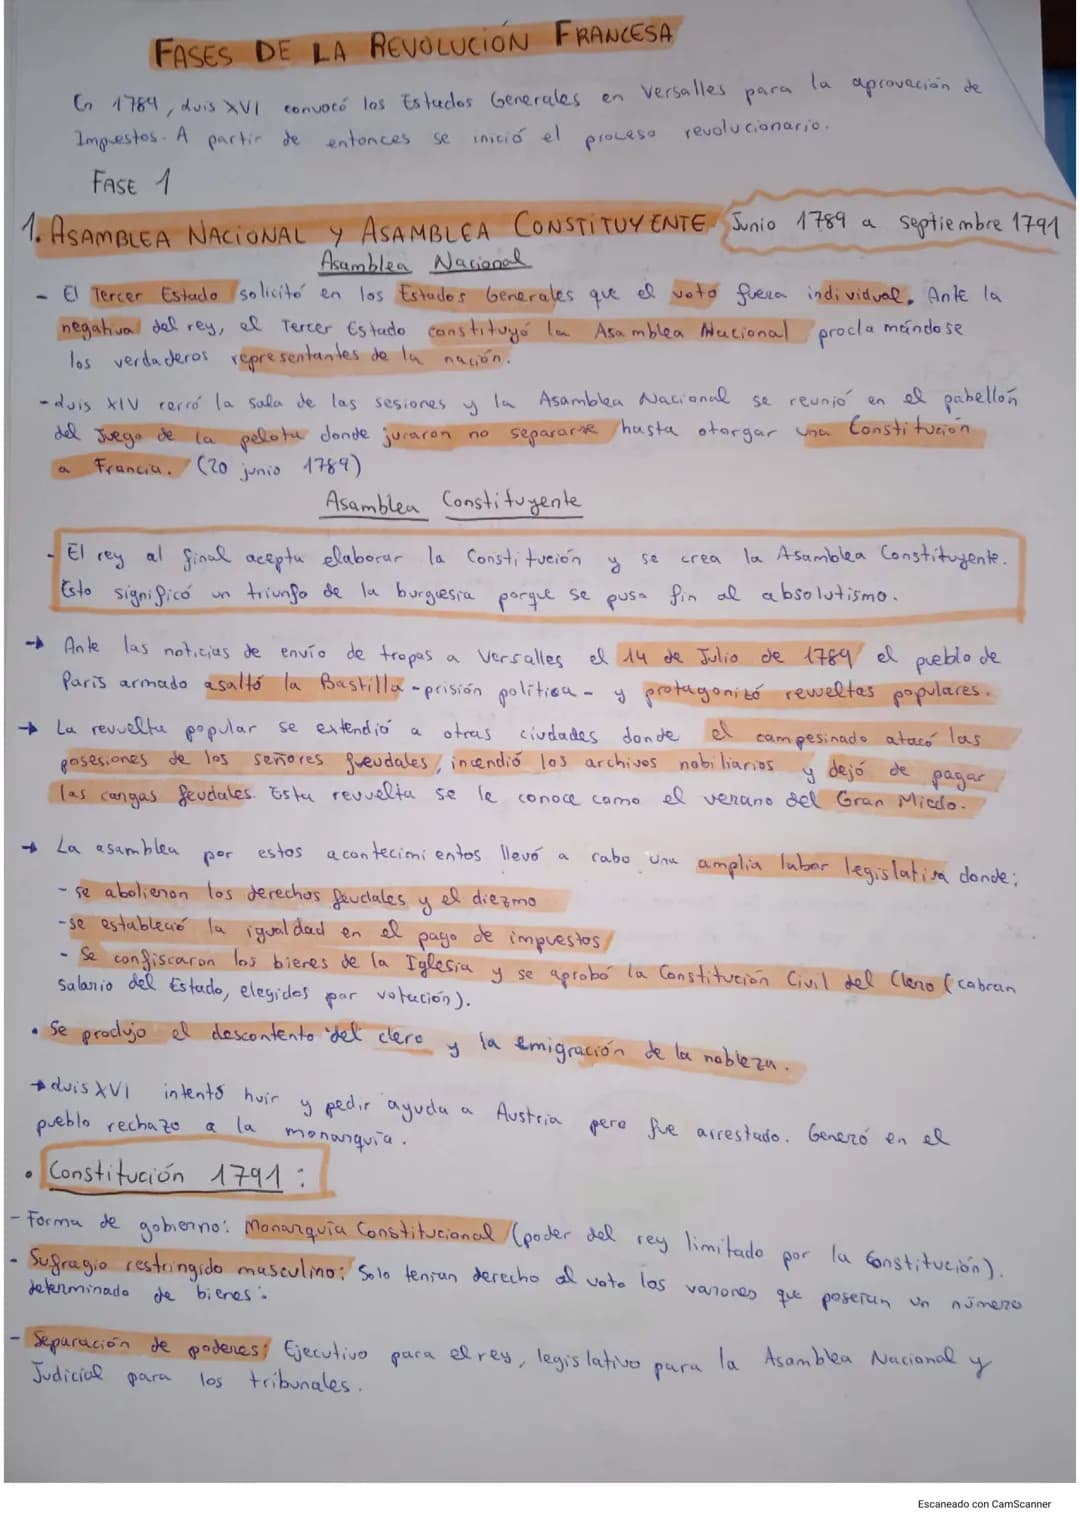 FASES DE LA REVOLUCIÓN FRANCESA
En 1789, Luis XVI convocó los Estados Generales en Versalles para la aprovación de
Impuestos. A partir de entonces se inició el proceso revolucionario.
FASE 1
1. ASAMBLEA NACIONAL Y ASAMBLEA CONSTITUYENTE Junio 1789 a septiembre 1791
Asamblea Nacional
- El Tercer Estado solicitó en los Estados Generales que el voto fuera individual. Ante la
negativa del rey, el Tercer Estado constituyó la Asamblea Nacional proclamándose
los verdaderos representantes de la nación.
- Luis XIV cerró la sala de las sesiones y la Asamblea Nacional se reunió en el pabellón
del Juego de la pelota donde juraron no separarse hasta otorgar una Constitución
a Francia. (20 junio 1789)
Asamblea Constituyente
- El rey al final acepta elaborar la Constitución y se crea la Asamblea Constituyente.
Esto significó un triunfo de la burguesía porque se puso fin al absolutismo.
→ Ante las noticias de envío de tropas a Versalles el 14 de Julio de 1789 el pueblo de
París armado asaltó la Bastilla - prisión política - y protagonizó revueltas populares.
→ La revuelta popular se extendió a otras ciudades donde el campesinado atacó las
posesiones de los señores feudales, incendió los archivos nobiliarios y dejó de pagar
las cargas feudales. Esta revuelta se le conoce como el verano del Gran Miedo.
→ La asamblea por estos acontecimientos llevó a cabo una amplia labor legislativa donde:
- se abolieron los derechos feudales y el diezmo
- se estableció la igualdad en el pago de impuestos
- Se confiscaron los bienes de la Iglesia y se aprobó la Constitución Civil del Clero (cobran
salario del Estado, elegidos por votación).
• Se produjo el descontento del clero y la emigración de la nobleza.
→ Luis XVI intentó huir y pedir ayuda a Austria pero fue arrestado. Generó en el
pueblo rechazo a la monarquía.
• Constitución 1791:
- Forma de gobierno: Monarquía Constitucional (poder del rey limitado por la Constitución).
- Sufragio restringido masculino: Solo tenían derecho al voto los varones que poseían un número
determinado de bienes.
- Separación de poderes: Ejecutivo para el rey, legislativo para la Asamblea Nacional y
Judicial para los tribunales.
Escaneado con CamScanner